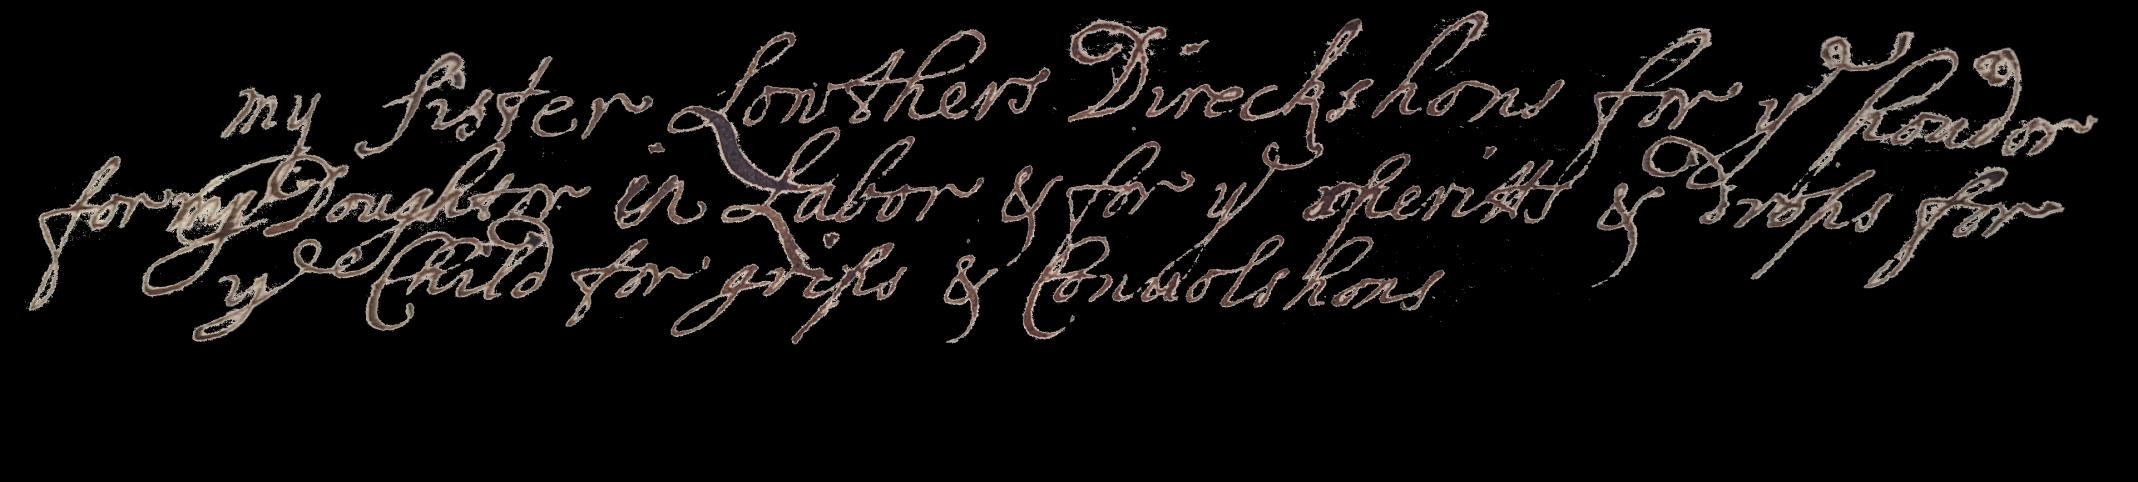 my sister Lowthers Direckshons for ye poudor
for my Doughter in Labor & for ye speritts & Drops for
ye Child for grips & Conuolshons